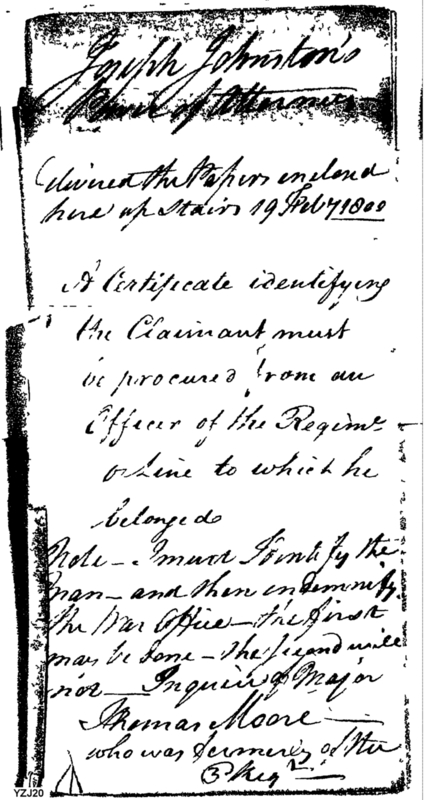 Joseph Johnston's
Power of Attorney
delivered the Papers enclosed
here up Stairs 19 Feby 1800
A Certificate identifying
the Claimant must
be procured from an
Officer of the Regimt
or Line to which he
belonged
Note - I must Identify the
man - and then indemnify
the War Office - the first
may be done - the second will
not - Inquire of Major
Thomas Moore -
who was formerly of the
3 Regt
YZJ20